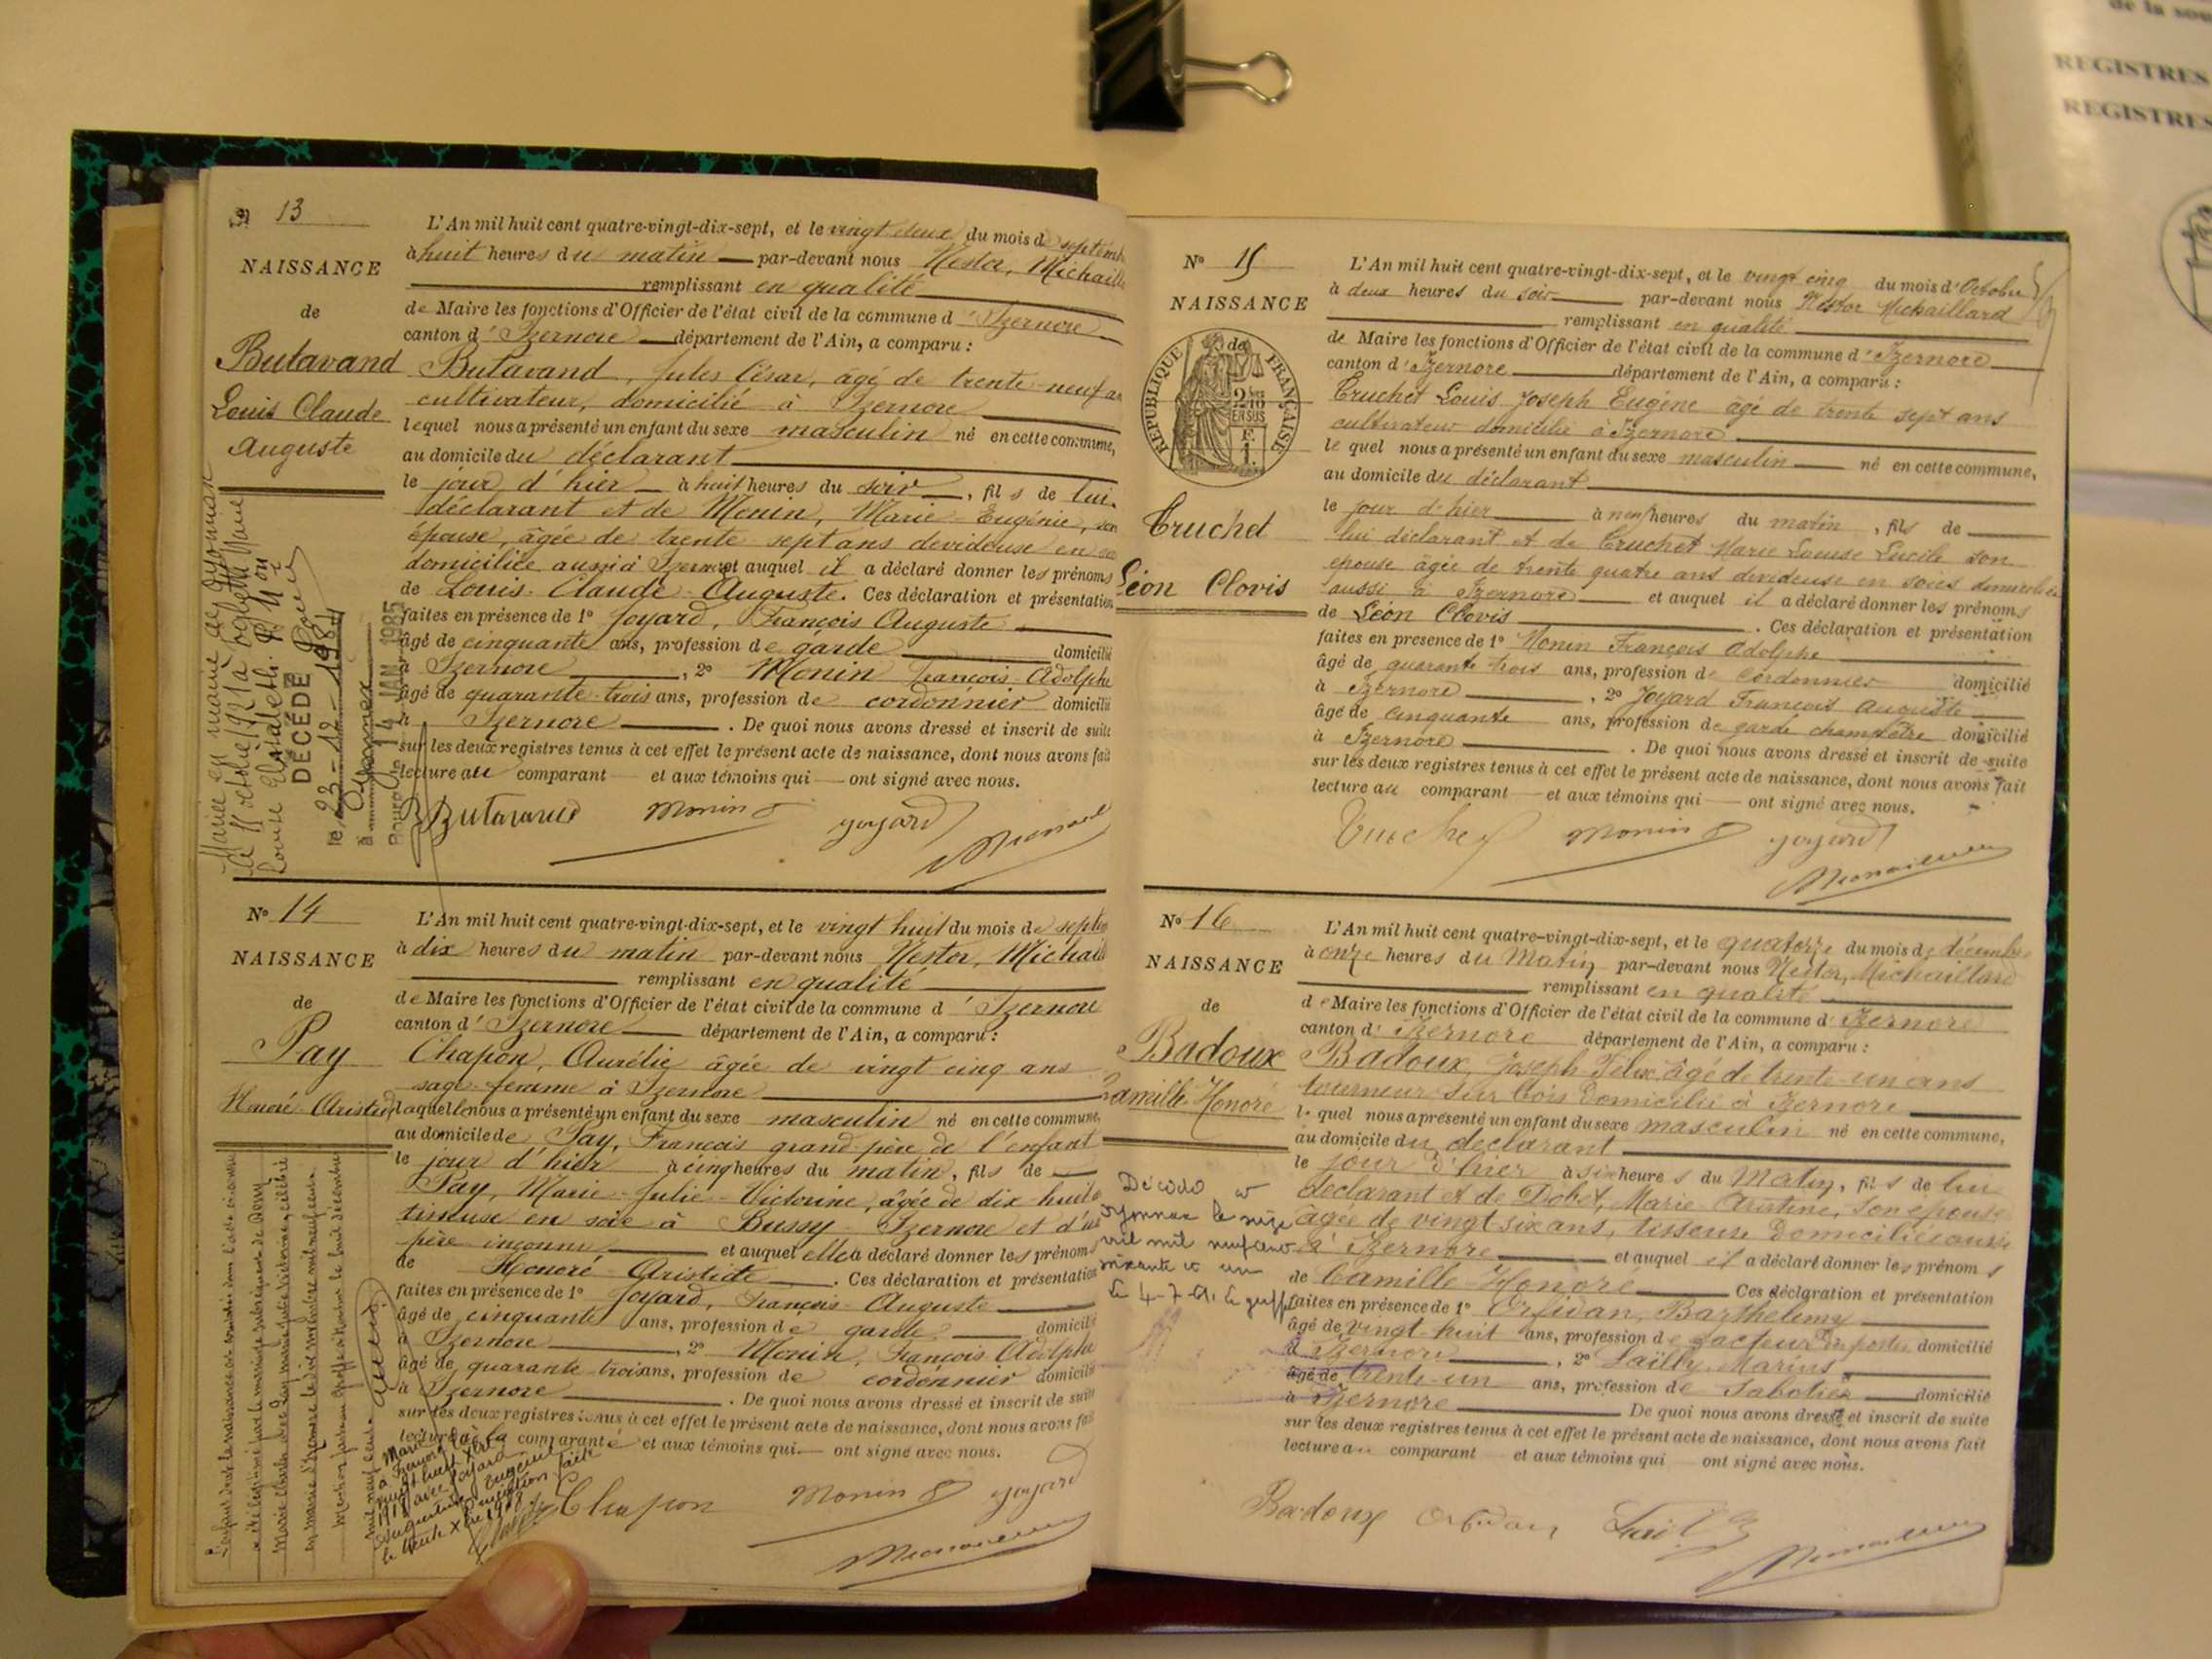 de la sou
REGISTRES
REGISTRES
N° 13
NAISSANCE
de
Butavand
Louis Claude
Auguste
L'An mil huit cent quatre-vingt-dix-sept, et le vingt deux du mois de septemb
à huit heures du matin par-devant nous Nestor, Michaill
remplissant en qualité
de Maire les fonctions d'Officier de l'état civil de la commune d'Izernore
canton d'Izernore département de l'Ain, a comparu :
Butavand, Jules César, âgé de trente-neuf an
cultivateur, domicilié à Izernore
lequel nous a présenté un enfant du sexe masculin né en cette commune,
au domicile du déclarant
le jour d'hier à huit heures du soir, fils de lui
déclarant et de Monin, Marie-Eugénie, son
épouse, âgée de trente sept ans devideuse en
domiciliée aussi à Izernore et auquel il a déclaré donner les prénoms
de Louis-Claude-Auguste. Ces déclaration et présentation
faites en présence de 1° Joyard, François Auguste
âgé de cinquante ans, profession de garde domicilié
à Izernore, 2° Monin François-Adolphe
âgé de quarante-trois ans, profession de cordonnier domicilié
à Izernore. De quoi nous avons dressé et inscrit de suite
sur les deux registres tenus à cet effet le présent acte de naissance, dont nous avons fait
lecture au comparant et aux témoins qui ont signé avec nous.
Butavand Monin Joyard
Marié en mairie
le 11 octobre 1921 à
Louise
DÉCÉDÉ
le 23-12-1984
à Oyonnax
14 JAN 1985
N° 14
NAISSANCE
de
Pay
Honoré Aristide
L'An mil huit cent quatre-vingt-dix-sept, et le vingt huit du mois de septem
à dix heures du matin par-devant nous Nestor, Michaill
remplissant en qualité
de Maire les fonctions d'Officier de l'état civil de la commune d'Izernore
canton d'Izernore département de l'Ain, a comparu :
Chapon, Aurélie âgée de vingt cinq ans
sage-femme à Izernore
laquelle nous a présenté un enfant du sexe masculin né en cette commune,
au domicile de Pay, François grand-père de l'enfant
le jour d'hier à cinq heures du matin, fils de
Pay, Marie-Julie-Victorine, âgée de dix-huit
tisseuse en soie à Bussy-Izernore et d'un
père inconnu et auquel elle a déclaré donner les prénoms
de Honoré-Aristide. Ces déclaration et présentation
faites en présence de 1° Joyard, François-Auguste
âgé de cinquante ans, profession de garde domicilié
à Izernore, 2° Monin, François Adolphe
âgé de quarante trois ans, profession de cordonnier domicilié
à Izernore. De quoi nous avons dressé et inscrit de suite
sur les deux registres tenus à cet effet le présent acte de naissance, dont nous avons fait
lecture à la comparante et aux témoins qui ont signé avec nous.
Chapon Monin Joyard
Marié
à Izernore
1918 avec Joyard
Augustine Eugénie
N° 15
NAISSANCE
de
RÉPUBLIQUE FRANÇAISE
2/10
EN SUS
F.
1
Truchet
Léon Clovis
L'An mil huit cent quatre-vingt-dix-sept, et le vingt cinq du mois d'Octobre
à deux heures du soir par-devant nous Nestor Michaillard
remplissant en qualité
de Maire les fonctions d'Officier de l'état civil de la commune d'Izernore
canton d'Izernore département de l'Ain, a comparu :
Truchet Louis Joseph Eugène âgé de trente sept ans
cultivateur domicilié à Izernore
le quel nous a présenté un enfant du sexe masculin né en cette commune,
au domicile du déclarant
le jour d'hier à neuf heures du matin, fils de
lui déclarant et de Truchet Marie Louise Lucile son
epouse âgée de trente quatre ans devideuse en soies domiciliée
aussi à Izernore et auquel il a déclaré donner les prénoms
de Léon Clovis. Ces déclaration et présentation
faites en présence de 1° Monin François Adolphe
âgé de quarante trois ans, profession de cordonnier domicilié
à Izernore, 2° Joyard François Auguste
âgé de cinquante ans, profession de garde champêtre domicilié
à Izernore. De quoi nous avons dressé et inscrit de suite
sur les deux registres tenus à cet effet le présent acte de naissance, dont nous avons fait
lecture au comparant et aux témoins qui ont signé avec nous.
Truchet Monin Joyard
N° 16
NAISSANCE
de
Badoux
Camille-Honoré
L'An mil huit cent quatre-vingt-dix-sept, et le quatorze du mois de décembre
à onze heures du Matin par-devant nous Nestor, Michaillard
remplissant en qualité
de Maire les fonctions d'Officier de l'état civil de la commune d'Izernore
canton d'Izernore département de l'Ain, a comparu :
Badoux, Joseph Félix âgé de trente-un ans
tourneur sur bois domicilié à Izernore
lequel nous a présenté un enfant du sexe masculin né en cette commune,
au domicile du déclarant
le jour d'hier à six heures du Matin, fils de lui
déclarant et de Marie son épouse
âgée de vingt-six ans, tisseuse domiciliée aussi
à Izernore et auquel il a déclaré donner les prénoms
de Camille-Honoré Ces déclaration et présentation
faites en présence de 1° Orfidan, Barthélemy
âgé de vingt-huit ans, profession de facteur des postes domicilié
à Izernore, 2° Laïlly, Marius
âgé de trente-un ans, profession de Sabotier domicilié
à Izernore De quoi nous avons dressé et inscrit de suite
sur les deux registres tenus à cet effet le présent acte de naissance, dont nous avons fait
lecture au comparant et aux témoins qui ont signé avec nous.
Badoux Orfidan
Décédé à
Oyonnax le seize
avril mil neuf cent
soixante et un